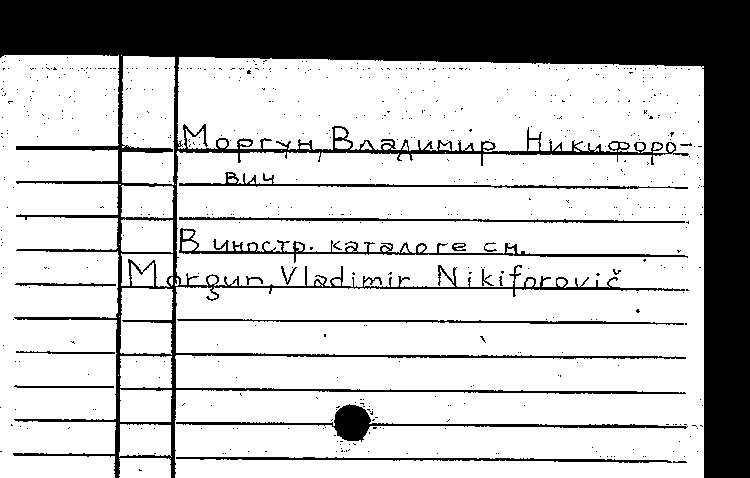 Моргун, Владимир Никифоро-
вич
В иностр. каталоге см.
Morgun, Vladimir Nikiforovič